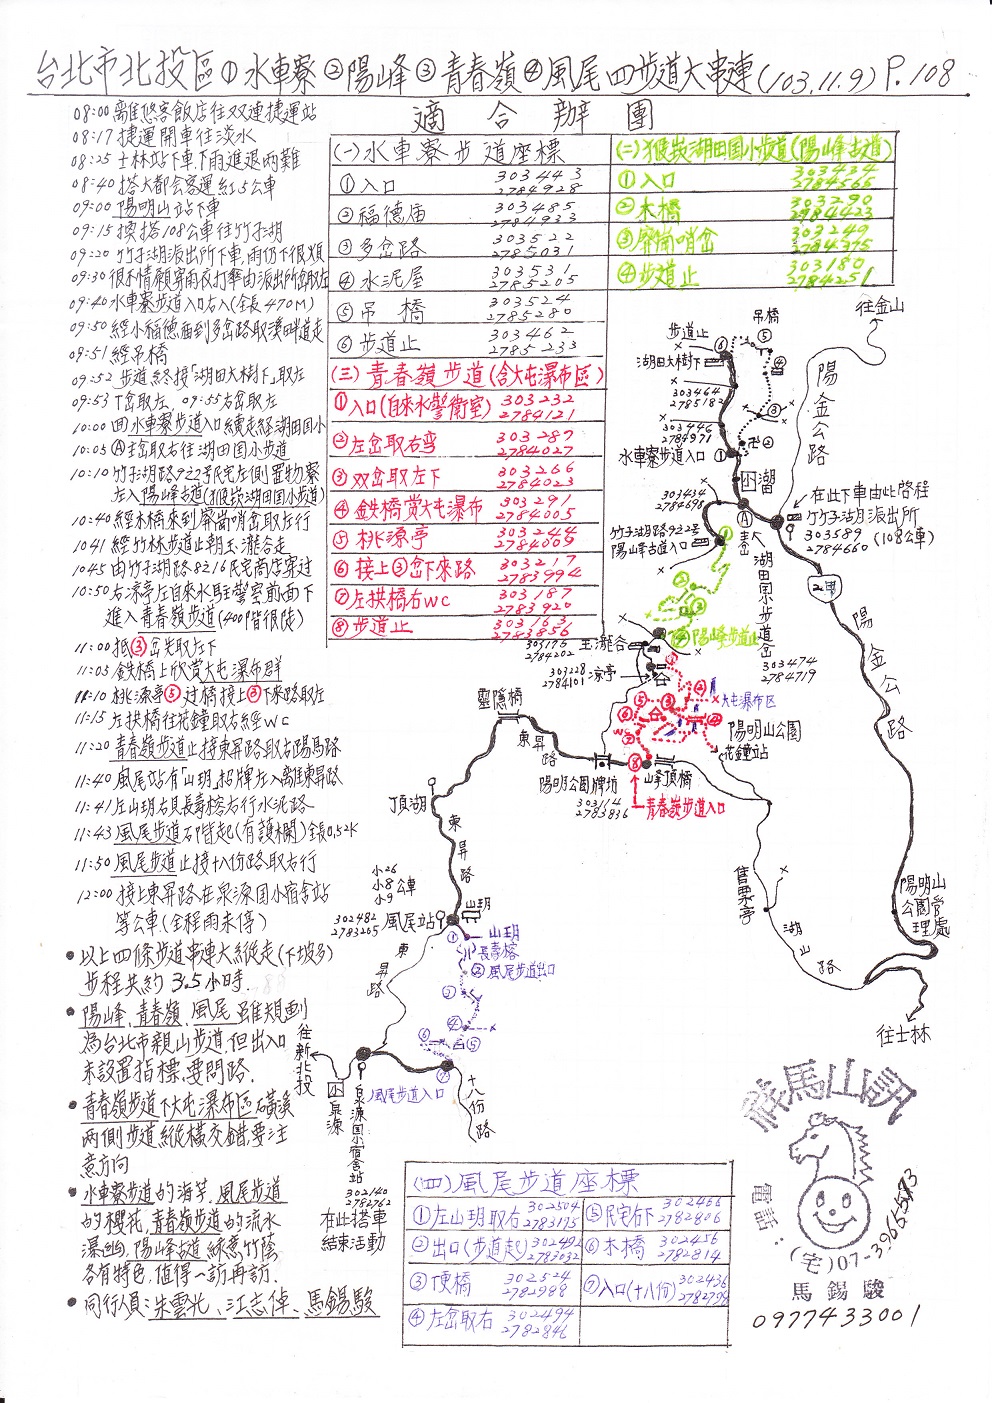 台北市北投區①水車寮②陽峰③青春嶺④風尾四步道大串連(103.11.9) P.108
適合辦團
08:00離悠客飯店往双連捷運站
08:17捷運開車往淡水
08:25士林站下車下雨進退兩難
08:40搭大都会客運紅5公車
09:00陽明山站下車
09:15換搭108公車往竹子湖
09:20竹子湖派出所下車,雨仍下很煩
09:30很不情願穿雨衣打傘由派出所岔取左
09:40水車寮步道入口右入(全長470M)
09:50經小福德庙到多岔路取溪畔道走
09:51經吊橋
09:52步道終接「湖田大樹下」取左
09:53丁岔取左、09:55右岔取左
10:00回水車寮步道入口續走経湖田国小
10:05Ⓐ主岔取右往湖田国小步道
10:10竹子湖路92之2号民宅左側置物寮
左入陽峰古道(猴崁湖田国小步道)
10:40經木橋來到廢崗哨岔取左行
1041經竹林步道止朝玉瀧谷走
1045由竹子湖路8216民宅商店穿过
10:50右涼亭左自來水駐警室前面下
進入青春嶺步道(400階很陡)
11:00抵③岔先取左下
11:05鉄橋上欣賞大屯瀑布群
11:10桃源亭⑤过橋接上③下來路取左
11:15左拱橋往花鐘取右經WC
11:20青春嶺步道止接東昇路取右陽馬路
11:40風尾站有「山玥」招牌左入離東昇路
11:41左山玥右見長壽榕右行水泥路
11:43風尾步道石階起(有護欄)全長0.52K
11:50風尾步道止接十八份路取右行
12:00接上東昇路在泉源国小宿舍站
等公車(全程雨未停)
•以上四條步道串連大縱走(下坡多)
步程共約3.5小時.
•陽峰、青春嶺、風尾雖規劃
為台北市親山步道,但出入口
未設置指標,要問路.
•青春嶺步道下大屯瀑布區磺溪
兩側步道縱橫交錯,要注
意方向
•水車寮步道的海芋、風尾步道
的櫻花,青春嶺步道的流水
瀑幽,陽峰古道綠意竹蔭
各有特色,值得一訪再訪.
•同行人員:朱雲光、江志倬、馬錫駿
(一)水車寮步道座標
①入口 303443 2784928
②福德庙 303485 2784933
③多岔路 303522 2785031
④水泥屋 303531 2785205
⑤吊橋 303524 2785280
⑥步道止 303462 2785233
(二)猴崁湖田国小步道(陽峰古道)
①入口 303434 2784565
②木橋 303290 2784423
③廢崗哨岔 303249 2784375
④步道止 303180 2784251
(三)青春嶺步道(含大屯瀑布区)
①入口(自來水警衛室) 303232 2784121
②左岔取右弯 303287 2784027
③双岔取左下 303266 2784023
④鉄橋赏大屯瀑布 303291 2784005
⑤桃源亭 303244 2784005
⑥接上③岔下來路 303217 2783994
⑦左拱橋右WC 303187 2783920
⑧步道止 303163 2783856
往金山
吊橋
步道止
湖田大樹下
303464
2785182
303446
2784971
水車寮步道入口
囚湖
陽金公路
在此下車由此啓程
竹子湖派出所
303589
2784660 (108公車)
303434
2784698
竹子湖路92之2号
陽峰古道入口
湖田国小步道岔
303474
2784719
陽峰步道止
玉瀧谷
303175
2784202
303228
2784101 涼亭
大屯瀑布区
陽明山公園
花鐘站
靈隱橋
東昇路
陽明公園牌坊
303114
2783836
峰頂橋
青春嶺步道入口
頂湖
東昇路
小26
小8公車
小9
302482
2783265 風尾站
山玥
山玥
長壽榕
風尾步道出口
東昇路
往新北投
小泉源
泉源国小宿舍站
302140
2782762
在此搭車
結束活動
風尾步道入口
十八份路
售票亭
湖山路
2甲
陽金公路
陽明山
公園管
理處
往士林
(四)風尾步道座標
①左山玥取右 302504 2783175
②出口(步道起) 302492 2783032
③便橋 302524 2782988
④左岔取右 302494 2782846
⑤民宅右下 302466 2782806
⑥木橋 302456 2782814
⑦入口(十八份) 302436 2782798
群馬山訊
電話:(宅)07-3965573
馬錫駿
0977433001